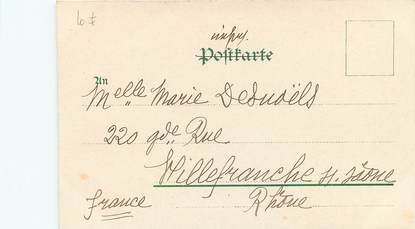 impr.
Postkarte
An
Melle Marie Desnoëls
220 gde. Rue
Villefranche s/. Saône
France Rhône